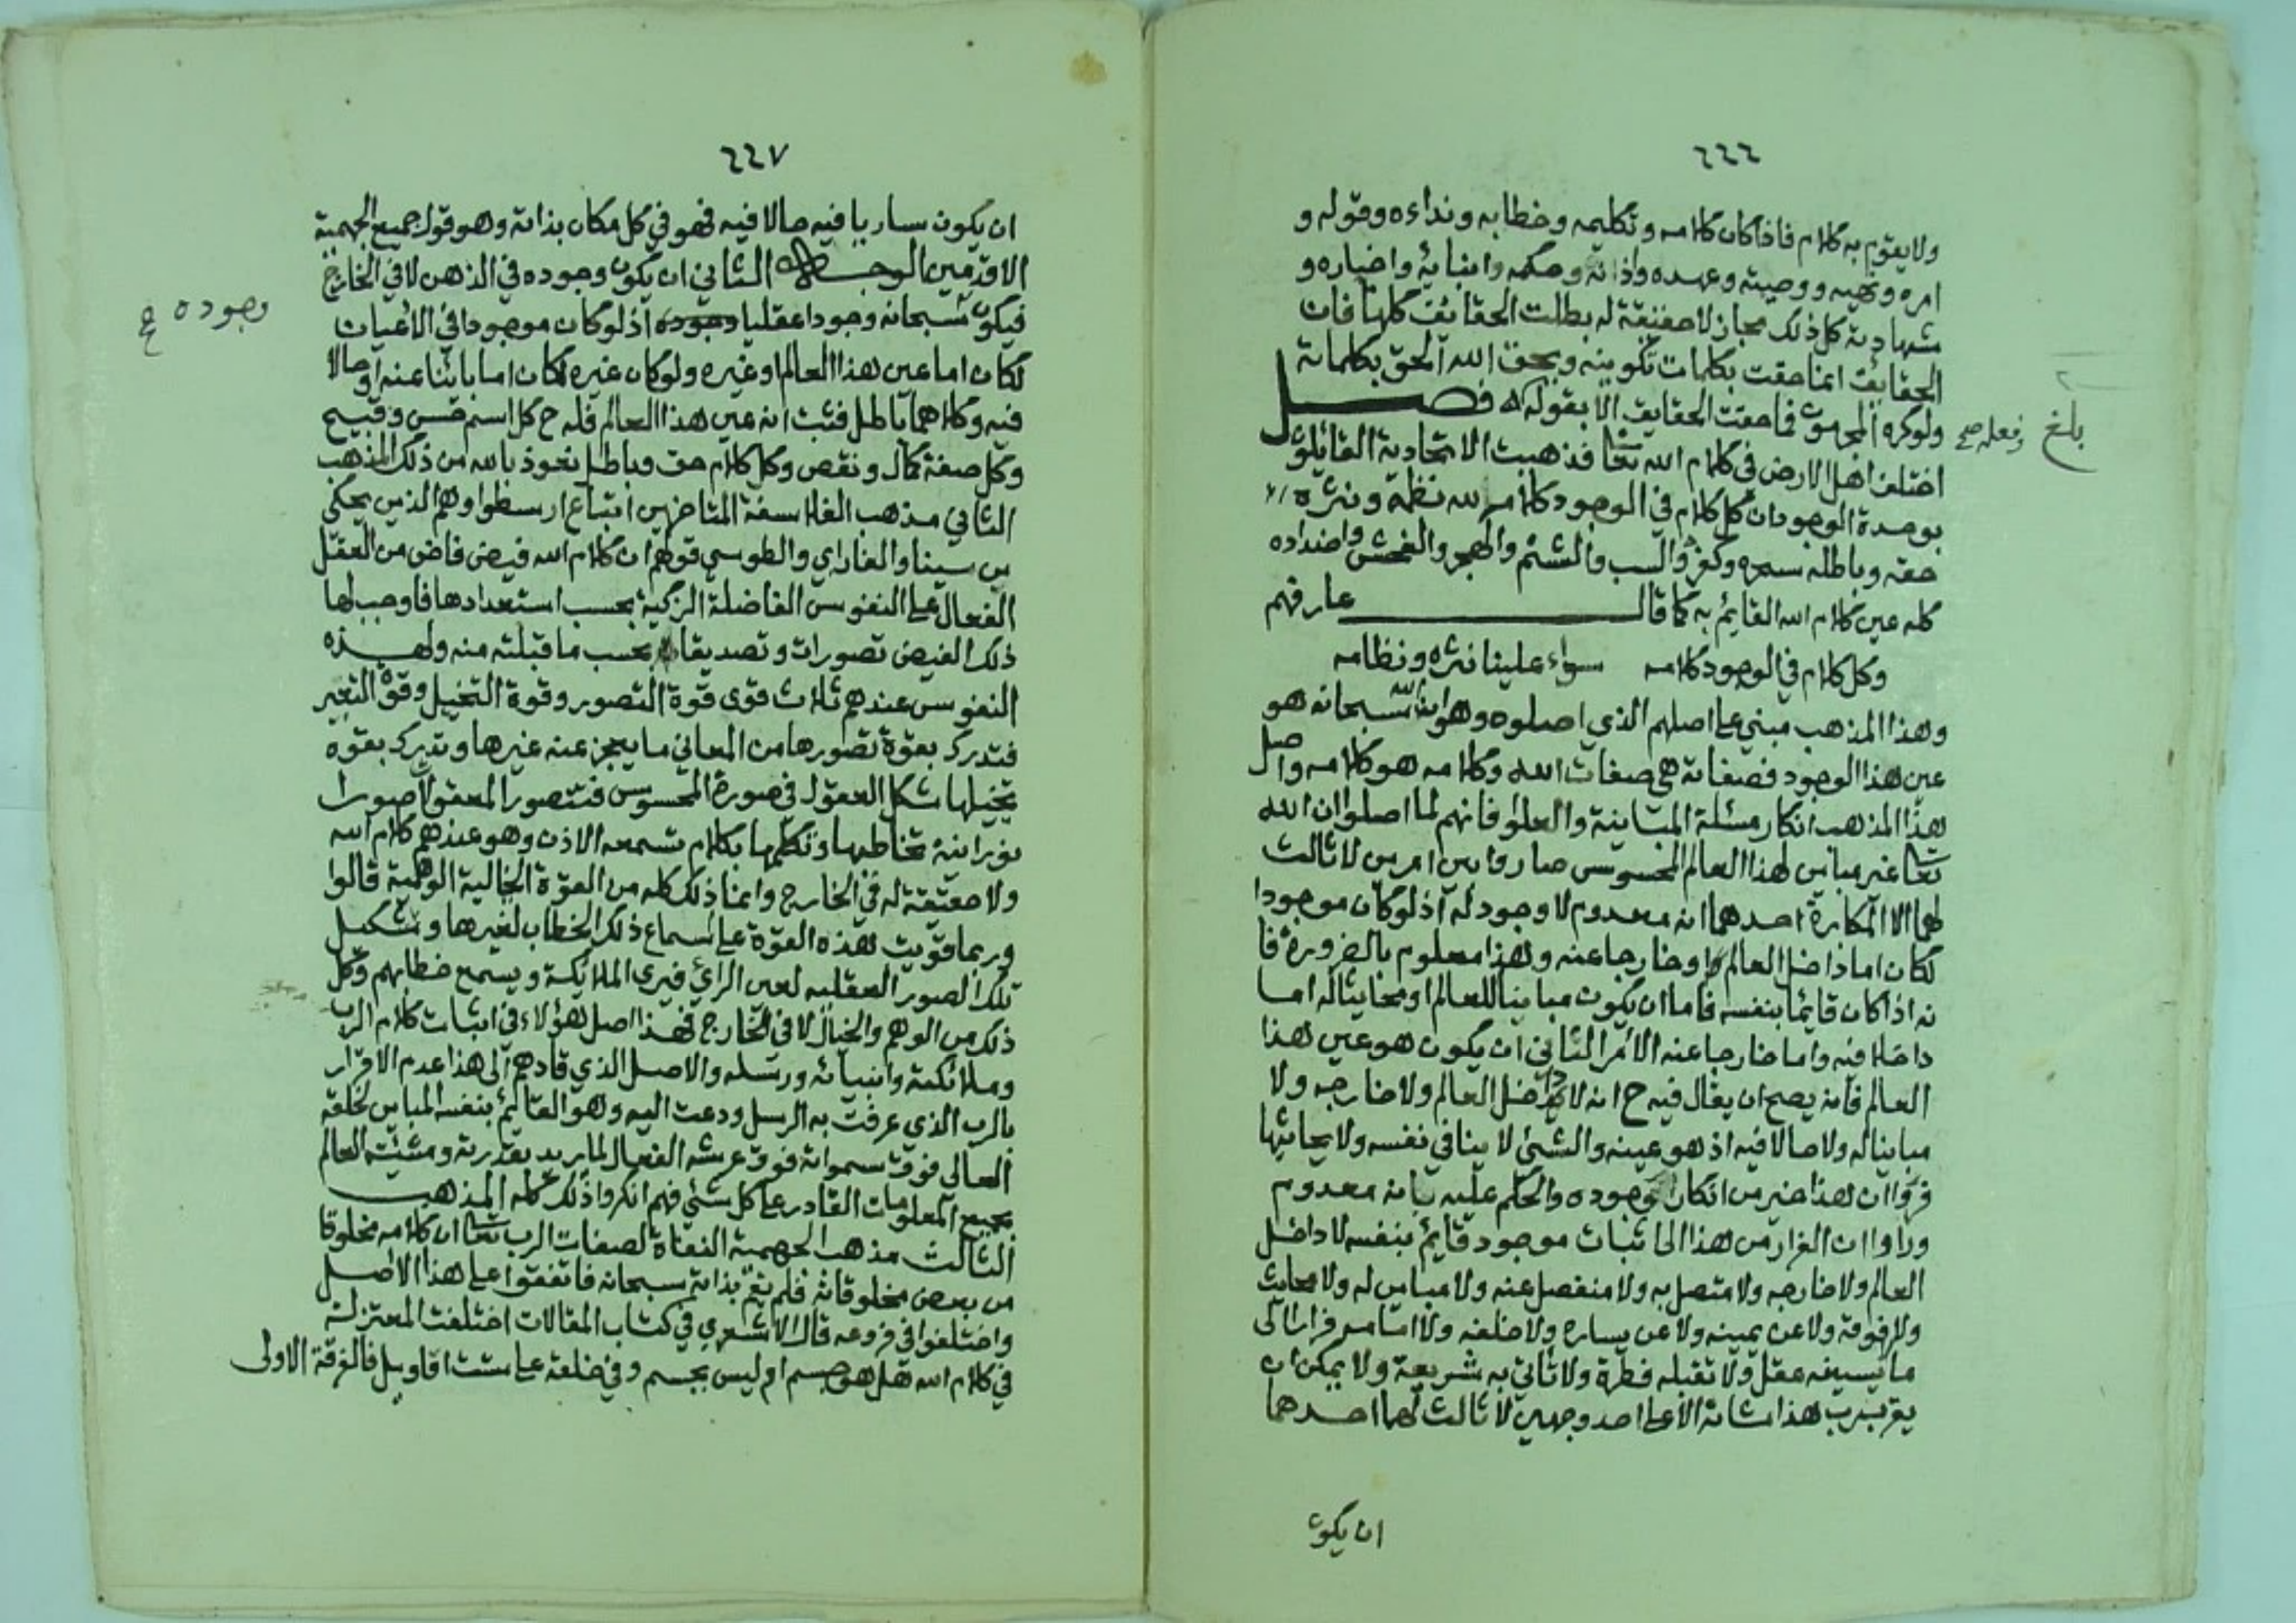 ٢٢٦
ولا يقوم به كلام فاذا كان كلامه وتكليمه وخطابه ونداءه وقوله و
امره ونهيه ووصيته وعهده واذنه وحكمه وانبايه واخباره و
شهادته كل ذلك مجاز لا حقيقة له بطلت الحقايق كلها فان
الحقايق انما حقت بكلمات تكوينه ويحق الله الحق بكلماته
ولوكره المجرمون فما حقت الحقايق الا بقوله فصل
وفعله صح
بلغ
اختلف اهل الارض في كلام الله تعا فذهبت الاتحادية القايلون
بوحدة الوجود ان كل كلام في الوجود كلام الله نظمه ونثره
حقه وباطله سحره وكفره والسب والشتم والهجر والفحش واضداده
كله عين كلام الله القايم به كما قال عارفهم
وكل كلام في الوجود كلامه سواء علينا نثره ونظامه
وهذا المذهب مبني على اصلهم الذي اصلوه وهو ان الله سبحانه هو
عين هذا الوجود فصفاته هي صفات الله وكلامه هو كلامه واصل
هذا المذهب انكار مسئلة المباينة والعلو فانهم لما اصلوا ان الله
تعا غير مباين لهذا العالم المحسوس صاروا بين امرين لا ثالث
لهما الا المكابرة احدهما انه معدوم لا وجود له اذ لو كان موجودا
لكان اما داخل العالم او خارجا عنه وهذا معلوم بالضرورة فا
نه اذا كان قايما بنفسه فاما ان يكون مباينا للعالم او محايثا له اما
داخلا فيه واما خارجا عنه الامر الثاني ان يكون هو عين هذا
العالم فانه يصح ان يقال فيه ح انه لا داخل العالم ولا خارجه ولا
مباينا له ولا حالا فيه اذ هو عينه والشئ لا ينافي نفسه ولا يحايثها
فراوا ان هذا خير من انكار وجوده والحكم عليه بانه معدوم
وراوا ان الفرار من هذا الى اثبات موجود قايم بنفسه لا داخل
العالم ولا خارجه ولا متصل به ولا منفصل عنه ولا مباين له ولا محايث
ولا فوقه ولا عن يمينه ولا عن يساره ولا خلفه ولا امامه فرارا الى
ما لا يسيغه عقل ولا تقبله فطرة ولا تاتي به شريعة ولا يمكن ان
يقر برب هذا شانه الا على احد وجهين لا ثالث لهما احدهما
ان يكون
٢٢٧
ان يكون ساريا فيه حالا فيه فهو في كل مكان بذاته وهو قول جميع الجهمية
الاقدمين الوجه الثاني ان يكون وجوده في الذهن لا في الخارج
فيكون سبحانه وجودا عقليا وجوده اذ لو كان موجودا في الاعيان
وجوده
لكان اما عين هذا العالم او غيره ولو كان غيره لكان اما باينا عنه او حالا
فيه وكلاهما باطل فثبت انه عين هذا العالم فله ح كل اسم حسن وقبيح
وكل صفة كمال ونقص وكل كلام حق وباطل نعوذ بالله من ذلك المذهب
الثاني مذهب الفلاسفة المتاخرين اتباع ارسطوا وهم الذين يحكي
بن سينا والفارابي والطوسي قولهم ان كلام الله فيض فاض من العقل
الفعال على النفوس الفاضلة الزكية بحسب استعدادها فاوجب لها
ذلك الفيض تصورات وتصديقات بحسب ما قبلته منه ولهذه
النفوس عندهم ثلاث قوى قوة التصور وقوة التخيل وقوة التعبير
فتدرك بقوة تصورها من المعاني ما يعجز عنه غيرها وتدرك بقوة
تخيلها شكل المعقول في صورة المحسوس فتتصور المعقول صورا
نورانية تخاطبها وتكلمها بكلام تسمعه الاذن وهو عندهم كلام الله
ولا حقيقة له في الخارج وانما ذلك كله من القوة الخيالية الوهمية قالوا
وربما قويت هذه القوة على اسماع ذلك الخطاب لغيرها وتشكيل
تلك الصور العقلية لعين الرائ فيرى الملائكة ويسمع خطابهم وكل
ذلك من الوهم والخيال لا في الخارج فهذا اصل هؤلاء في اثبات كلام الرب
وملائكته وانبيائه ورسله والاصل الذي قادهم الى هذا عدم الاقرار
بالرب الذي عرفت به الرسل ودعت اليه وهو القايم بنفسه المباين لخلقه
العالي فوق سمواته فوق عرشه الفعال لما يريد بقدرته ومشيئته العالم
بجميع المعلومات القادر على كل شئ فهم انكروا ذلك كله المذهب
الثالث مذهب الجهمية النفاة لصفات الرب تعا ان كلامه مخلوقا
من بعض مخلوقاته فلم يقم بذاته سبحانه فاتفقوا على هذا الاصل
واختلفوا في فروعه قال الاشعري في كتاب المقالات اختلفت المعتزلة
في كلام الله هل هو جسم او ليس بجسم وفي خلقه على ست اقاويل فالفرقة الاولى